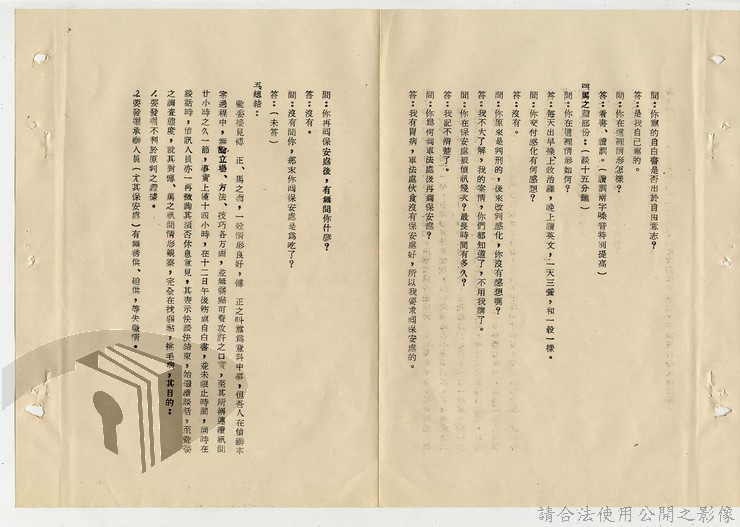 問：你寫的自白書是否出於自由意志？
答：是我自己寫的。
問：你在這裡情形怎樣？
答：看書、讀訓。（讀訓兩字嗓音特別提高）
四馬之驌部份：（談十五分鐘）
問：你在這裡情形如何？
答：每天出早操上政治課，晚上讀英文，一天三餐，和一般一樣。
問：你交付感化有何感想？
答：沒有。
問：你原來是判刑的，後來改判感化，你沒有感想嗎？
答：我不大了解，我的案情，你們都知道了，不用我講了。
問：你在保安處被偵訊幾次？最長時間有多久？
答：我記不清楚了。
問：你為何到軍法處後再到保安處？
答：我有胃病，軍法處伙食沒有保安處好，所以我要求到保安處的。
問：你再到保安處後，有無問你什麼？
答：沒有。
問：沒有問你，那末你到保安處是為吃了？
答：（未答）
五、總結：
正、馬之驌，一般情形良好，傅 正之叫囂為意料中事，但吾人在偵辦本
案過程中，無論立場、方法、技巧各方面，並無弱點可資攻訐之口實，至其所稱連續訊問
廿小時之久一節，事實上僅十四小時，在十二日午後飭寫自白書，並未限止時間，同時在
談話時，偵訊人員亦一再徵詢其須否休息意見，其表示快談快結束，始繼續談話，至監委
之調查態度，就其對傅、馬之訊問情形觀察，完全在找弱點，挑毛病，其目的：
1.要發現不利於原判之證據。
2.要發現承辦人員（尤其保安處）有無誘供、迫供，等失職情。
請合法使用公開之影像